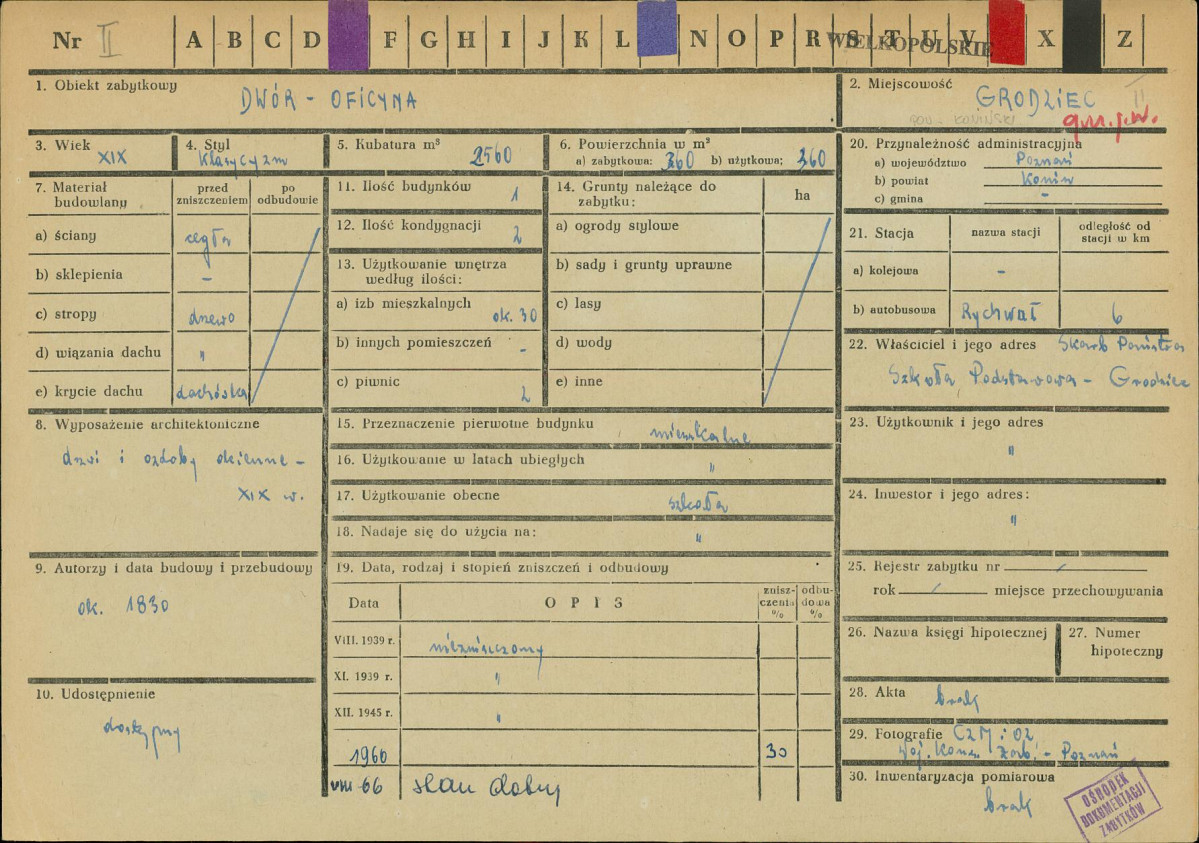 Nr II A B C D F G H I J K L N O P R S T U V X Z
WIELKOPOLSKIE
1. Obiekt zabytkowy
DWÓR - OFICYNA
2. Miejscowość
GRODZIEC II
POW. KONIŃSKI
gm.j.w.
3. Wiek
XIX
4. Styl
klasycyzm
5. Kubatura m³
2560
6. Powierzchnia w m²
a) zabytkowa: 360 b) użytkowa: 360
7. Materiał budowlany
przed zniszczeniem
po odbudowie
a) ściany cegła
b) sklepienia -
c) stropy drzewo
d) wiązania dachu "
e) krycie dachu dachówka
8. Wyposażenie architektoniczne
drzwi i ozdoby okienne -
XIX w.
9. Autorzy i data budowy i przebudowy
ok. 1830
10. Udostępnienie
dostępny
11. Ilość budynków 1
12. Ilość kondygnacji 2
13. Użytkowanie wnętrza
według ilości:
a) izb mieszkalnych ok. 30
b) innych pomieszczeń -
c) piwnic 2
14. Grunty należące do
zabytku:
ha
a) ogrody stylowe
b) sady i grunty uprawne
c) lasy
d) wody
e) inne
15. Przeznaczenie pierwotne budynku mieszkalne
16. Użytkowanie w latach ubiegłych "
17. Użytkowanie obecne szkoła
18. Nadaje się do użycia na: "
19. Data, rodzaj i stopień zniszczeń i odbudowy
Data OPIS znisz-czenia % odbu-dowa %
VIII. 1939 r. niezniszczony
XI. 1939 r. "
XII. 1945 r. "
1960 30
VIII-66 stan dobry
20. Przynależność administracyjna
a) województwo Poznań
b) powiat Konin
c) gmina -
21. Stacja
nazwa stacji
odległość od stacji w km
a) kolejowa -
b) autobusowa Rychwał 6
22. Właściciel i jego adres Skarb Państwa
Szkoła Podstawowa - Grodziec
23. Użytkownik i jego adres
"
24. Inwestor i jego adres:
"
25. Rejestr zabytku nr /
rok / miejsce przechowywania
26. Nazwa księgi hipotecznej
27. Numer
hipoteczny
28. Akta brak
29. Fotografie CZM i OZ
Woj. Kons. Zab. - Poznań
30. Inwentaryzacja pomiarowa
brak
OŚRODEK
DOKUMENTACJI
ZABYTKÓW